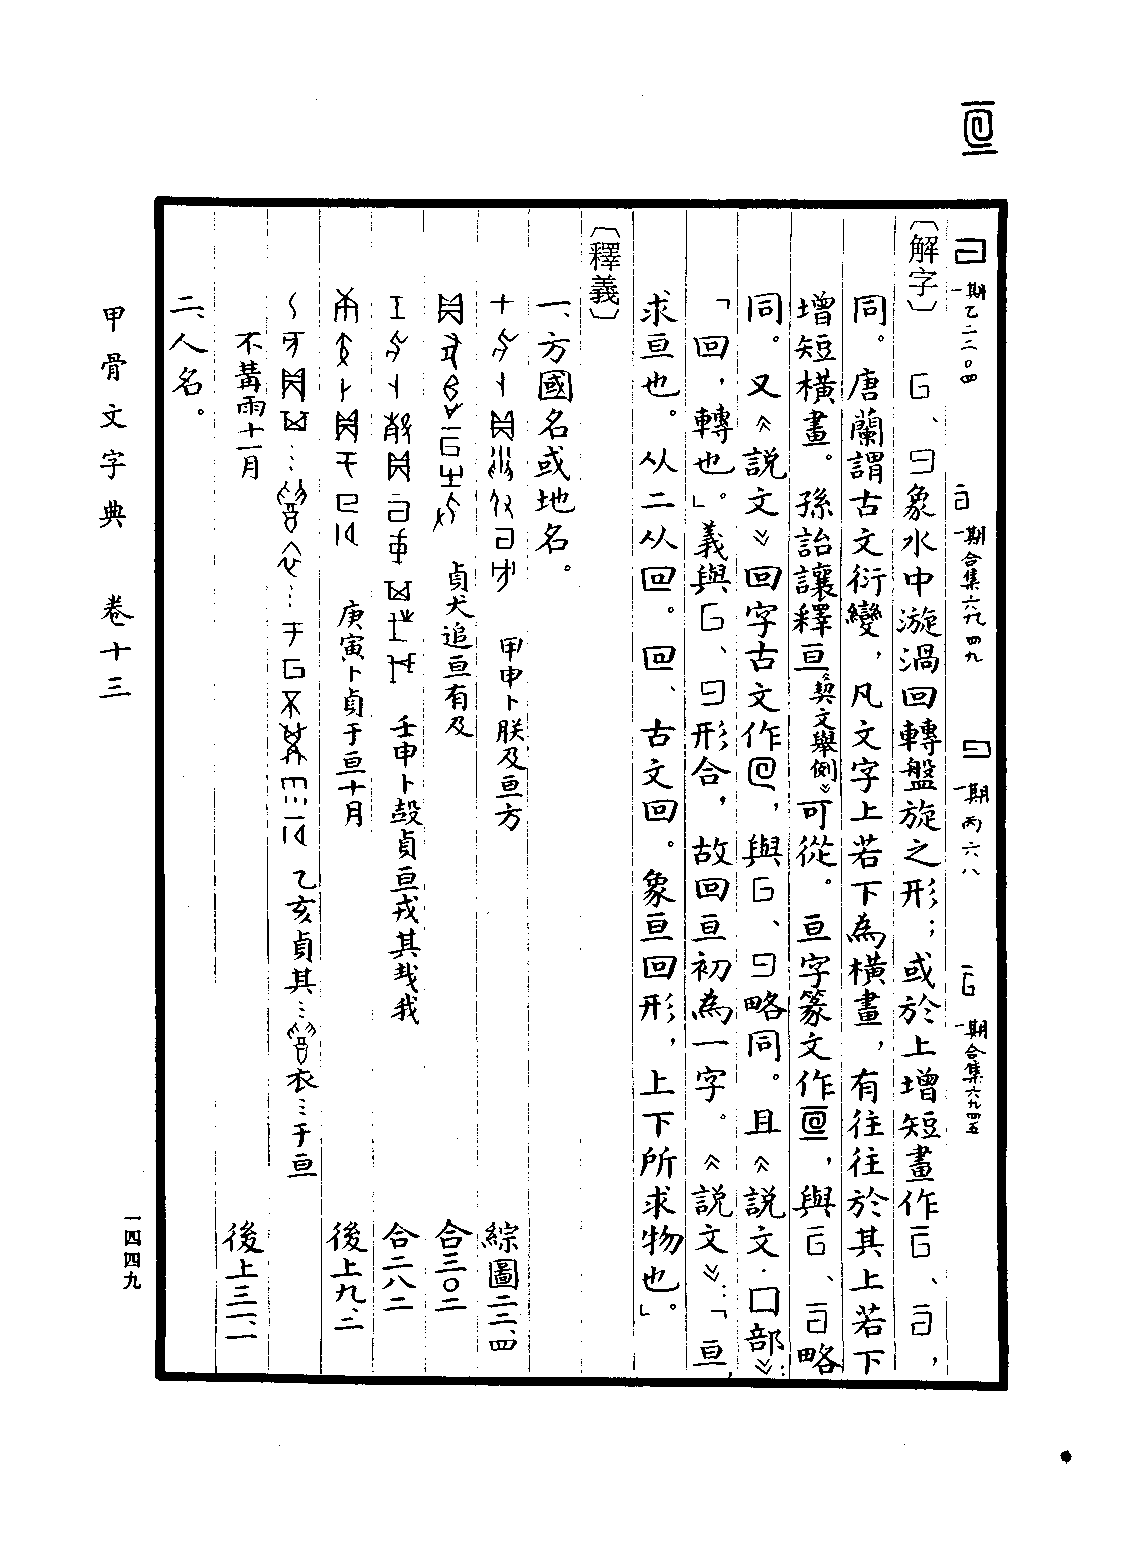 亘
一期乙二二〇四
一期合集六九四九
一期丙六八
一期合集六九四五
〔解字〕 、象水中漩渦回轉盤旋之形；或於上增短畫作、，
同。唐蘭謂古文衍變，凡文字上若下為橫畫，有往往於其上若下
增短橫畫。孫詒讓釋亘《契文舉例》可從。亘字篆文作，與、略
同。又《說文》回字古文作，與、略同。且《說文·囗部》：
「回，轉也。」義與、形合，故回亘初為一字。《說文》：「亘，
求亘也。从二从囘。囘、古文回。象亘回形，上下所求物也。」
〔釋義〕
一、方國名或地名。
甲申卜朕及亘方 綜圖二三、四
貞犬追亘有及 合三〇二
壬申卜㱿貞亘戎其𢦏我 合二八二
庚寅卜貞于亘十月 後上九、二
乙亥貞其…衣…于亘
不冓雨十一月 後上三一、一
二、人名。
甲骨文字典 卷十三
一四四九